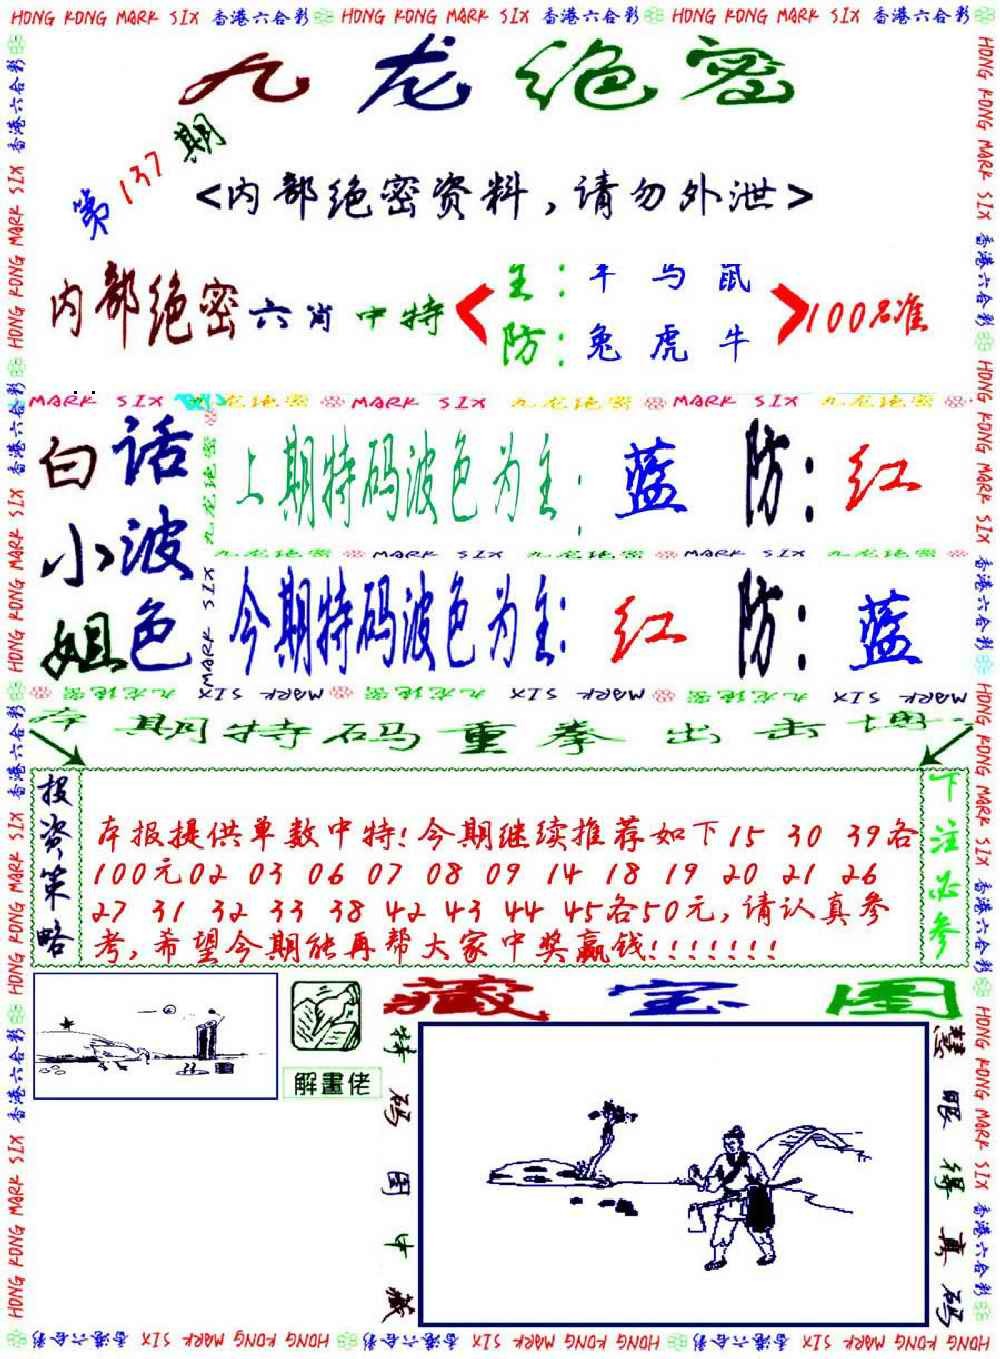 HONG KONG MARK SIX 香港六合彩 HONG KONG MARK SIX 香港六合彩 HONG KONG MARK SIX 香港六合彩
九龙绝密
第137期
<内部绝密资料，请勿外泄>
内部绝密六肖中特
主：羊 马 鼠
防：兔 虎 牛
100%准
MARK SIX 九龙绝密 MARK SIX 九龙绝密 MARK SIX 九龙绝密
白话
小波
姐色
上期特码波色为主：蓝 防：红
九龙绝密 MARK SIX 九龙绝密 MARK SIX 九龙绝密
今期特码波色为主：红 防：蓝
九龙绝密 MARK SIX 九龙绝密 MARK SIX 九龙绝密 MARK SIX
本期特码重拳出击
投资策略
本报提供单数中特!今期继续推荐如下15 30 39各
100元02 03 06 07 08 09 14 18 19 20 21 26
27 31 32 33 38 42 43 44 45各50元,请认真参
考,希望今期能再帮大家中奖赢钱!!!!!!!
下注必参
解畫佬
藏宝图
特码图中藏
慧眼得真码
香港六合彩 HONG KONG MARK SIX 香港六合彩 HONG KONG MARK SIX 香港六合彩 HONG KONG MARK SIX